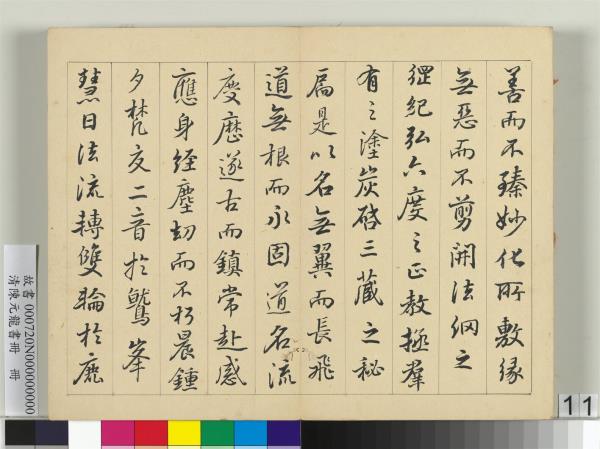 善而不臻妙化所敷緣
無惡而不剪開法網之
綱紀弘六度之正教拯羣
有之塗炭啓三藏之秘
扃是以名無翼而長飛
道無根而永固道名流
慶歷遂古而鎮常赴感
應身經塵劫而不朽晨鍾
夕梵交二音於鷲峯
慧日法流轉雙輪於鹿
故書 000720N000000000
清陳元龍書冊 冊
11